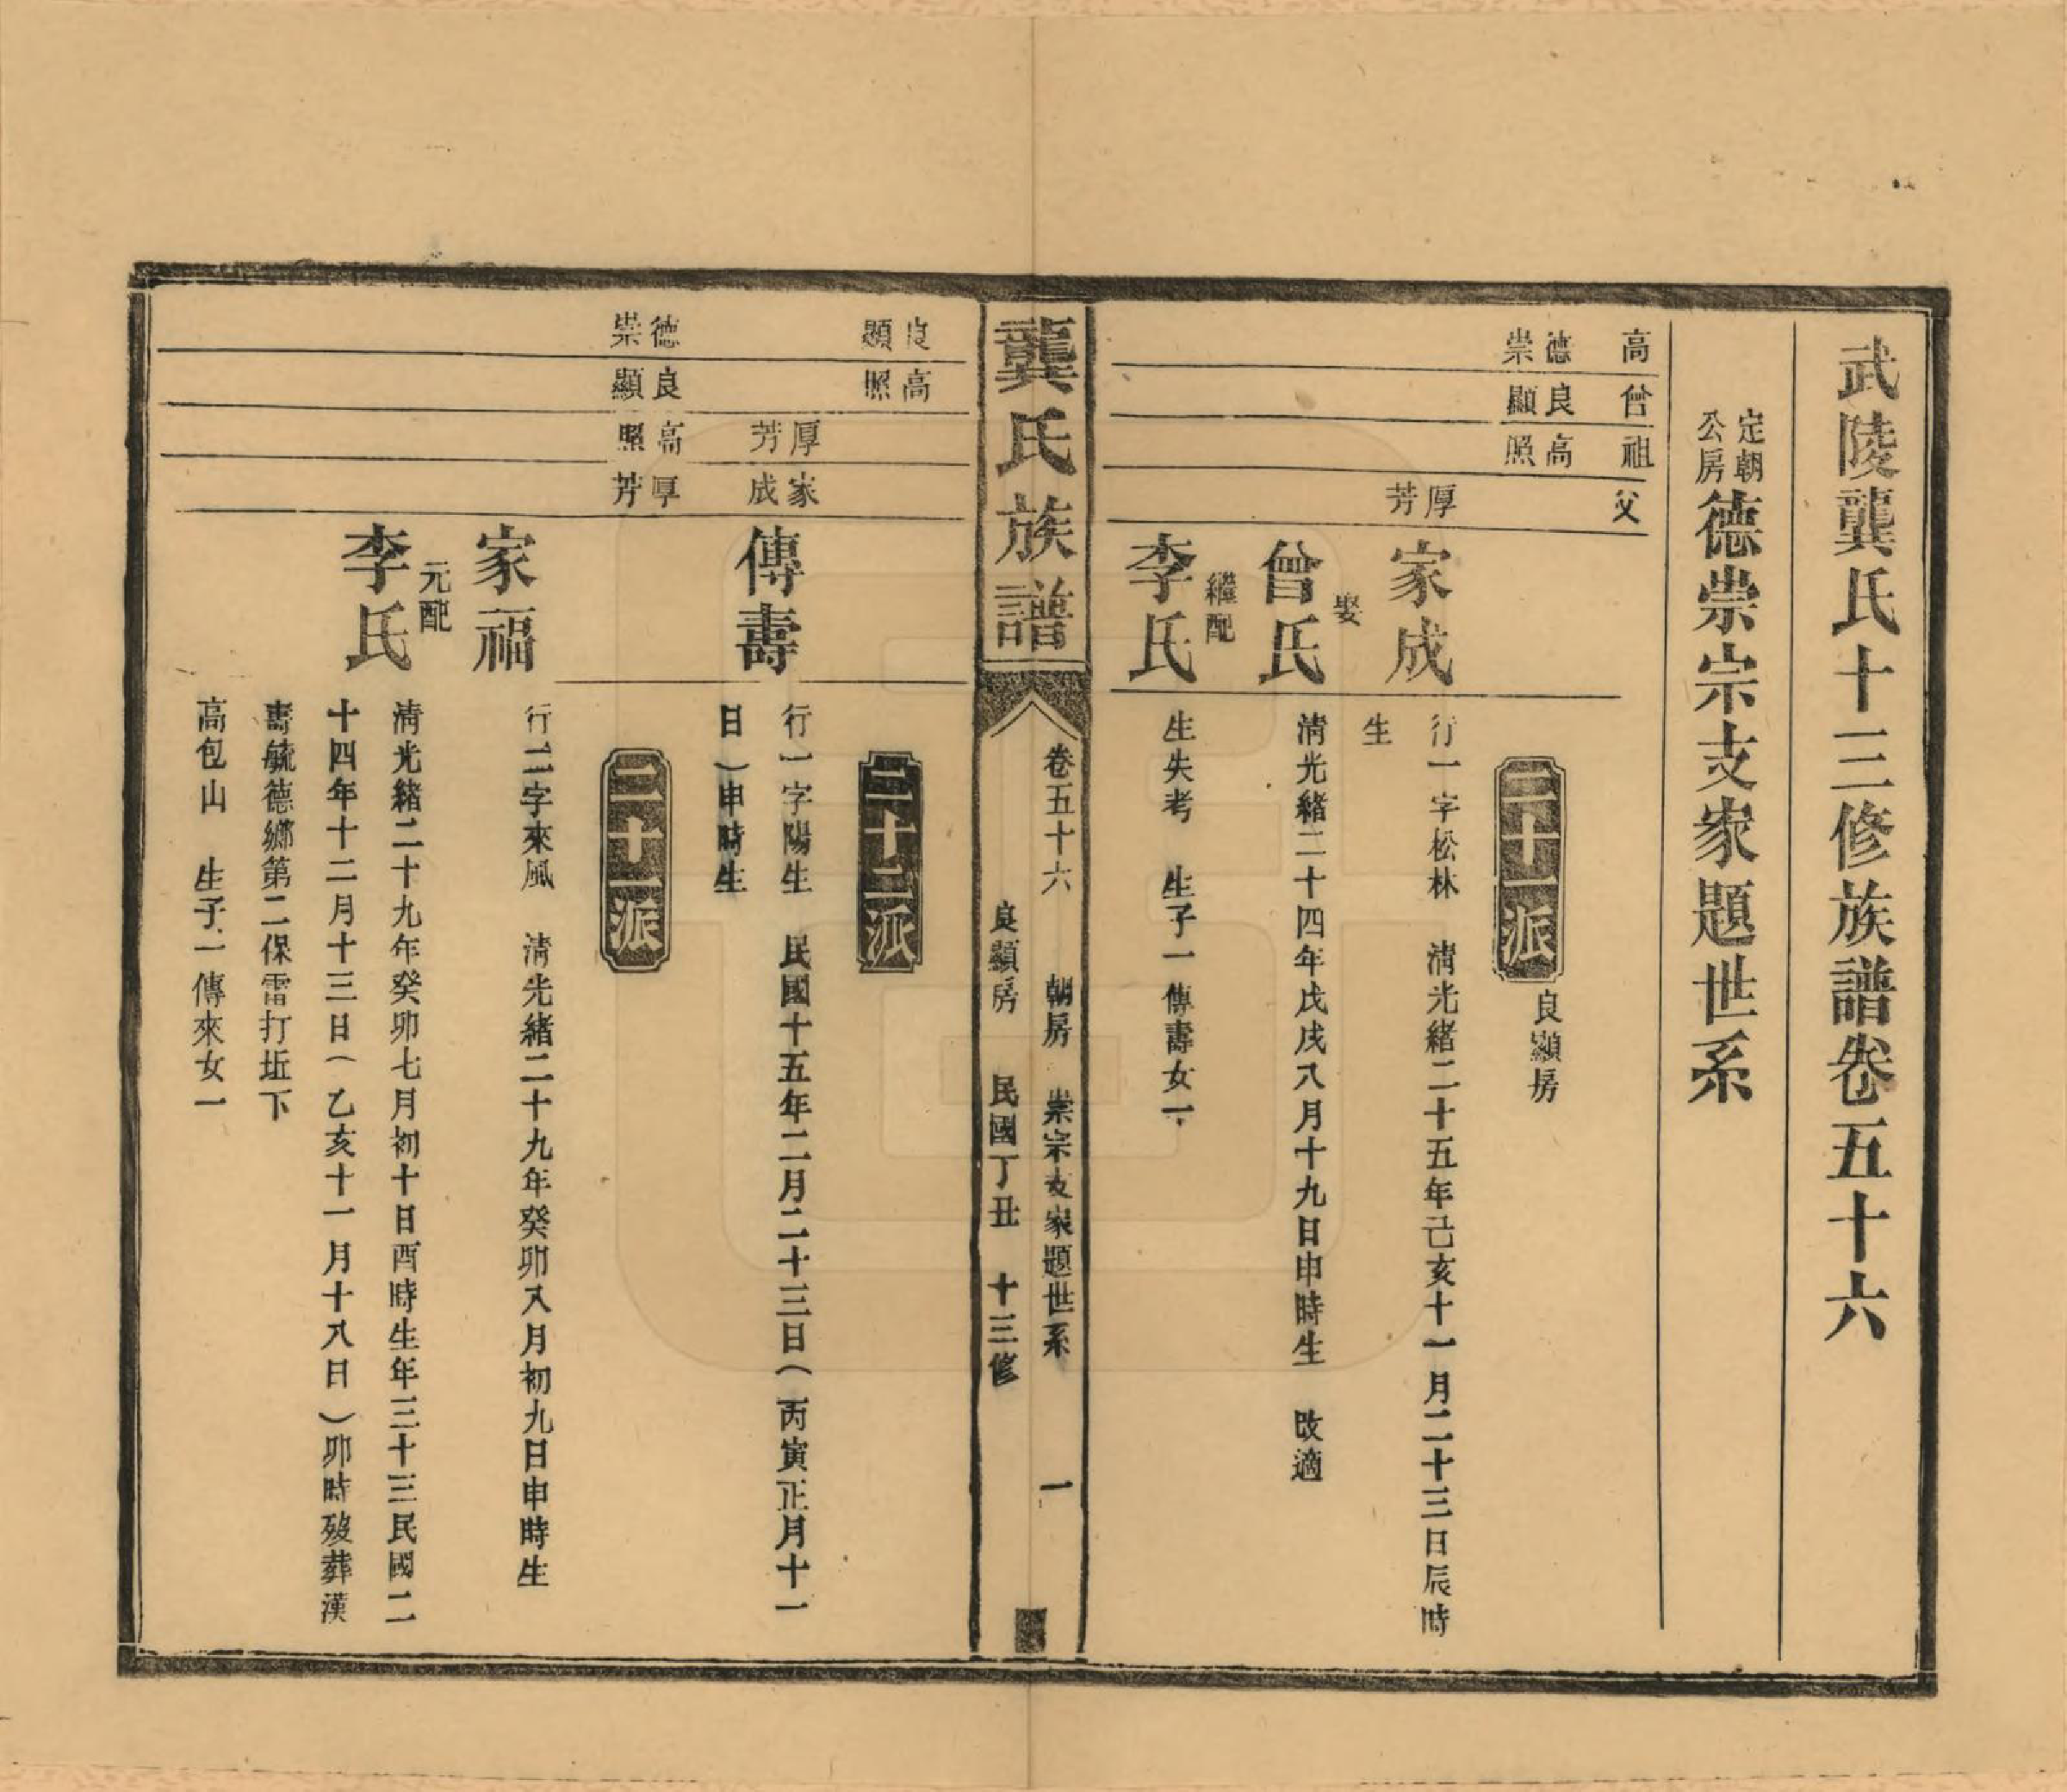 武陵龔氏十三修族譜卷五十六
定朝公房德崇宗支家題世系
高 曾 祖 父
德崇 良顯 高照
二十一派 良顯房
厚芳
家成
行一字松林 淸光緒二十五年己亥十一月二十三日辰時
生
娶
曾氏
淸光緒二十四年戊戌八月十九日申時生 改適
繼配
李氏
生失考 生子一傳壽女一
龔氏族譜
卷五十六 朝房 崇宗支家題世系 一
良顯房 民國丁丑 十三修
良顯 高照
二十二派
厚芳 家成
傳壽
行一字陽生 民國十五年二月二十三日（丙寅正月十一
日）申時生
德崇 良顯 高照 厚芳
二十一派
家福
行二字來風 淸光緒二十九年癸卯八月初九日申時生
元配
李氏
淸光緒二十九年癸卯七月初十日酉時生年三十三民國二
十四年十二月十三日（乙亥十一月十八日）卯時歿葬漢
壽毓德鄉第二保雷打坵下
高包山 生子一傳來女一